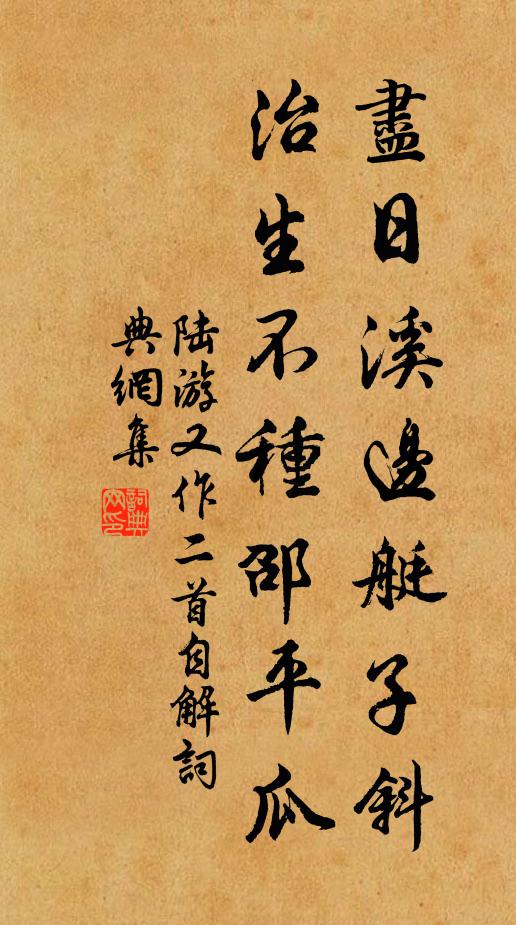 盡日溪邊艇子斜
治生不種邵平瓜
陆游又作二首自解詞
典網集
詞典網印